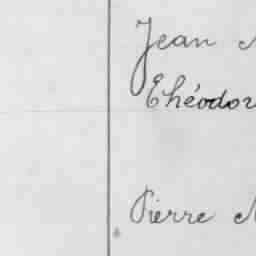 Jean
Théodor
Pierre